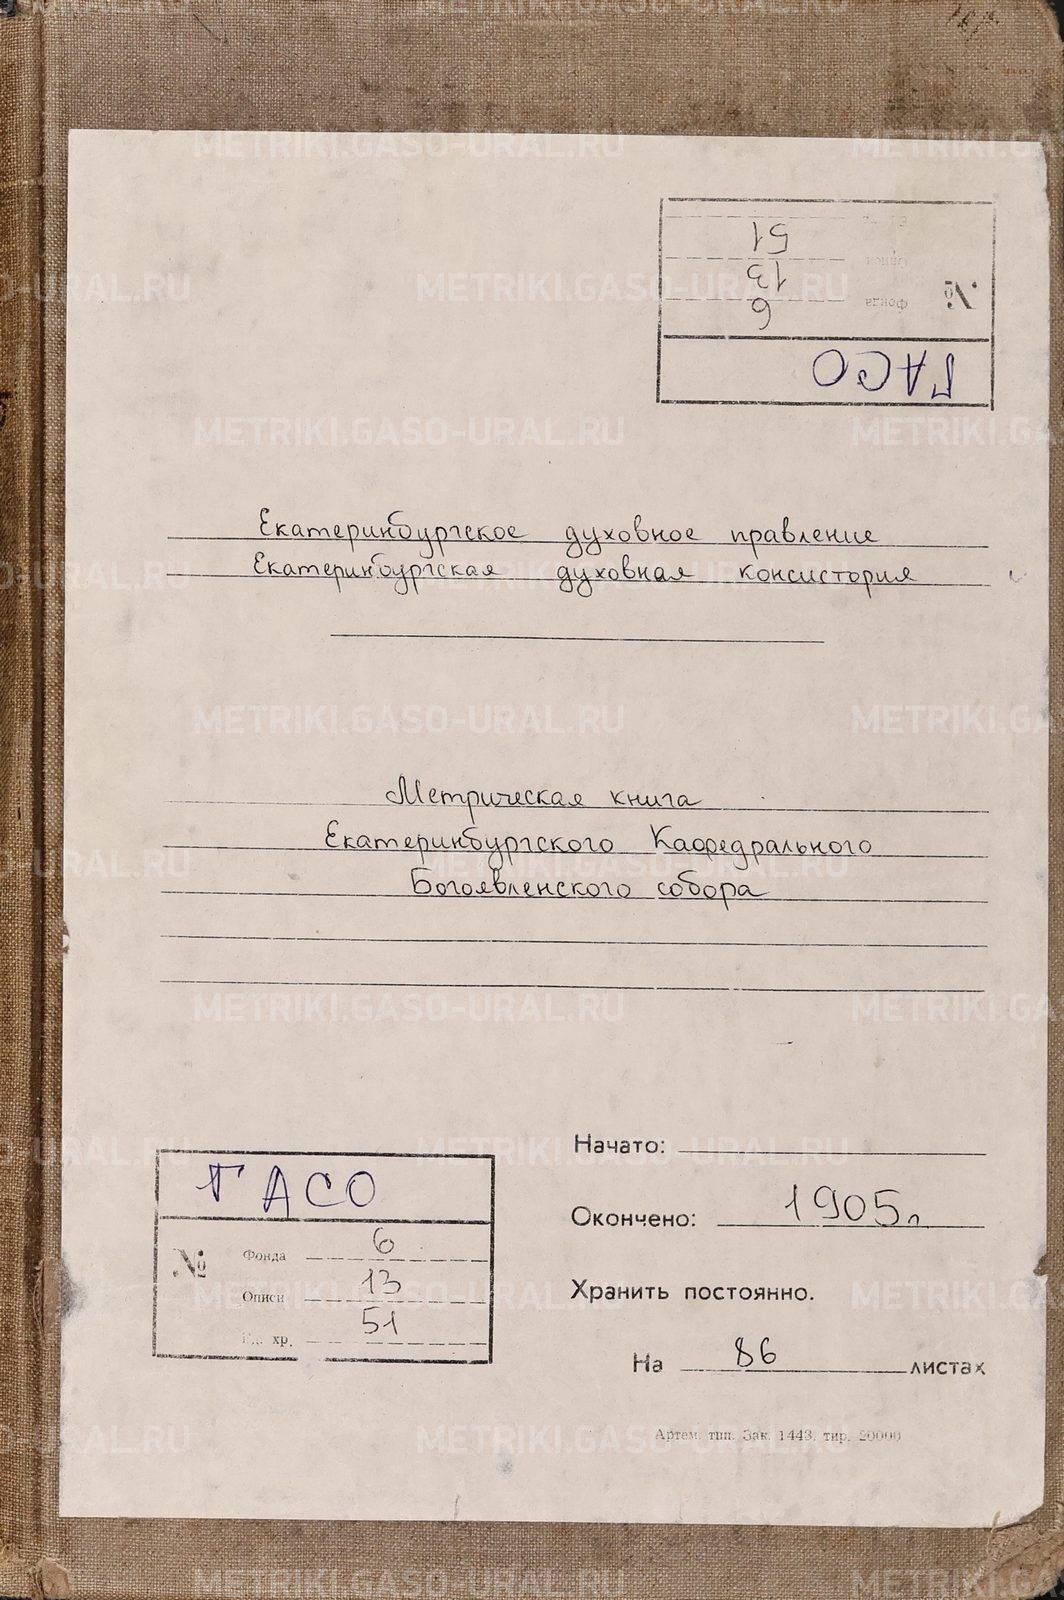 ГАСО
№
Фонда 6
Описи 13
51
Екатеринбургское духовное правление
Екатеринбургская духовная консистория
Метрическая книга
Екатеринбургского Кафедрального
Богоявленского собора
Начато:
Окончено: 1905г
Хранить постоянно.
На 86 листах
ГАСО
№
Фонда 6
Описи 13
хр. 51
Артем. тип. Зак. 1443. тир. 20000
METRIKI.GASO-URAL.RU